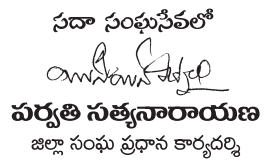 సదా సంఘసేవలో
పర్వతి సత్యనారాయణ
జిల్లా సంఘ ప్రధాన కార్యదర్శి